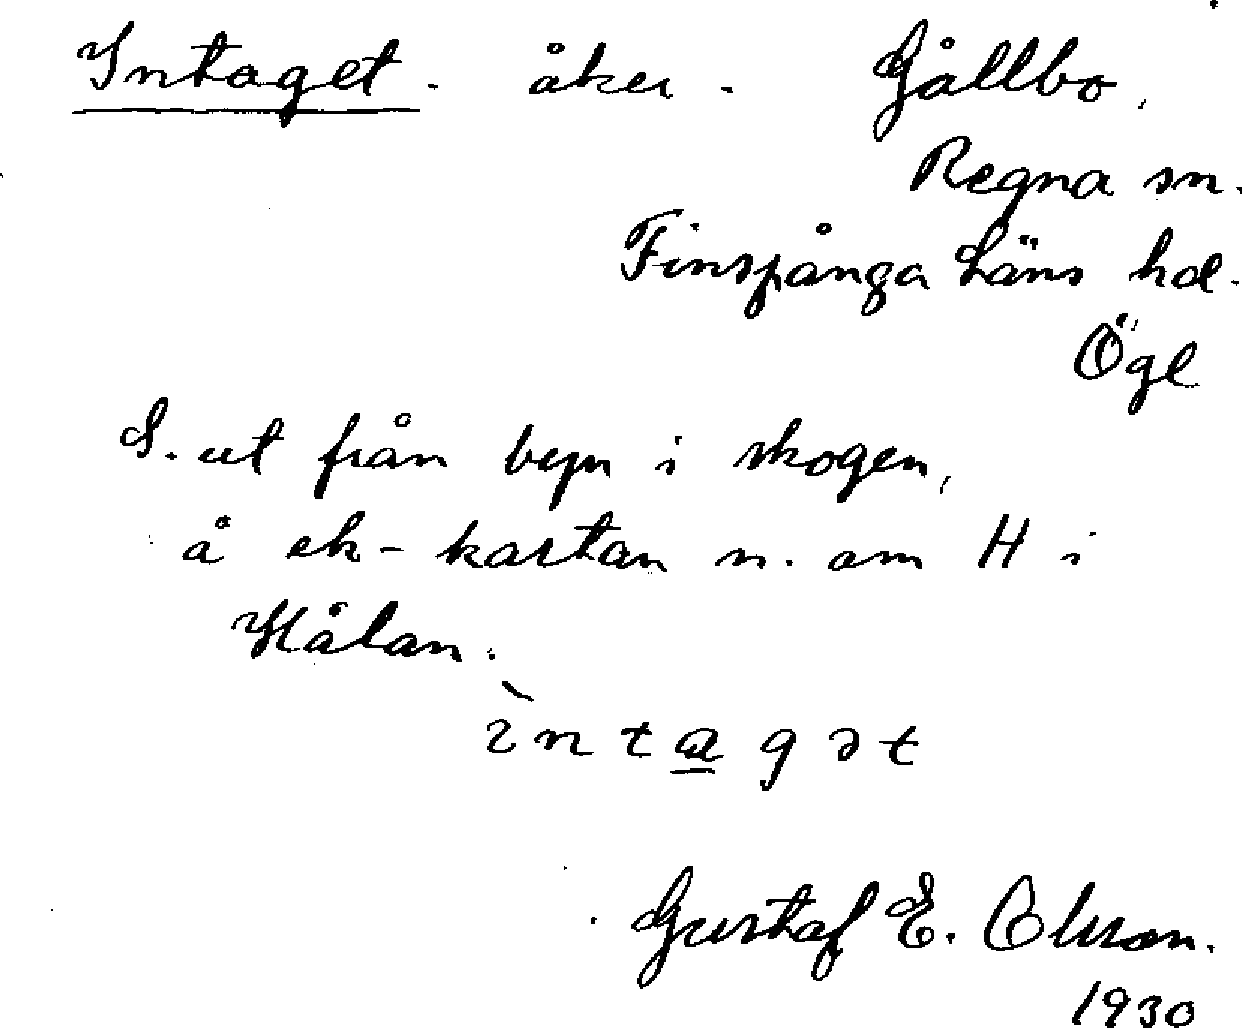 Intaget. åker. Gållbo,
Regna sn.
Finspånga läns hd.
Ögl
S. ut från byn i skogen,
å ek-kartan n. om H i
Hålan.
ìntagət
Gustaf E. Olsson.
1930